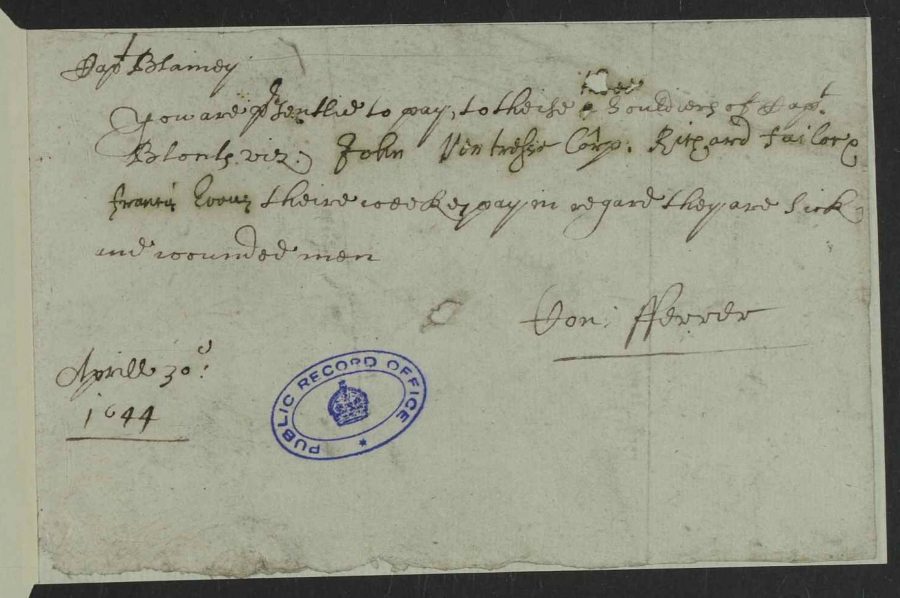 Capt Blamey
You are psentlie to pay, to theise three Souldiers of Capt.
Blonts viz: John Ventresse Corp. Richard Tailor
Francis Evans theire weekes pay in regard they are Sick
and wounded men
Con: fferrer
Aprill 30th:
1644
PUBLIC RECORD OFFICE